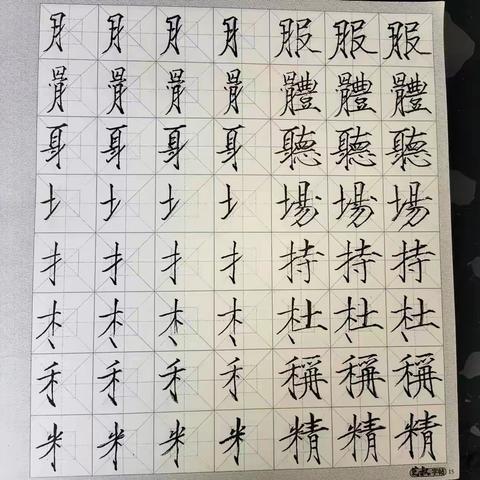 月 月 月 月 服 服 服
骨 骨 骨 骨 體 體 體
耳 耳 耳 耳 聽 聽 聽
土 土 土 土 場 場 場
扌 扌 扌 扌 持 持 持
木 木 木 木 杜 杜 杜
禾 禾 禾 禾 稱 稱 稱
米 米 米 米 精 精 精
字帖 15